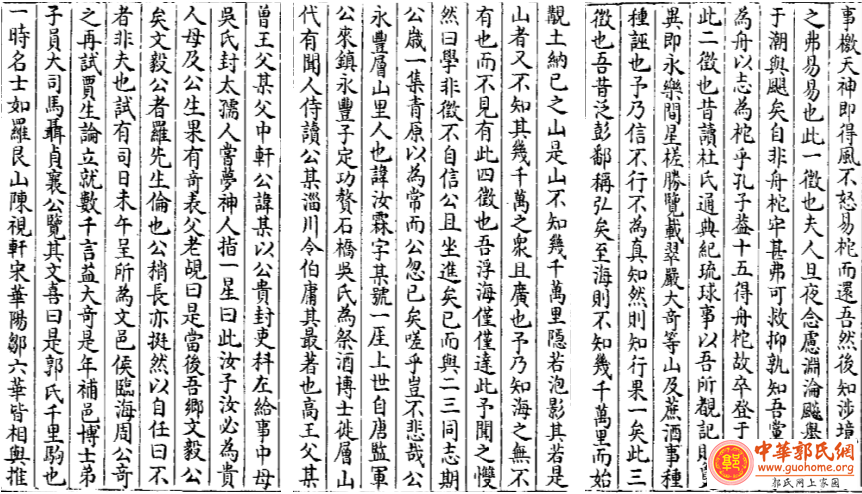 事檄天神即得風不怒易柁而還吾然後知涉境
之弗易易也此一徵也夫人旦夜念慮淵淪颷舉
于潮與颶矣自非舟柁牢甚弗可救抑孰知吾黨
為舟以志為柁乎孔子蓋十五得舟柁故卒登于
此二徵也昔讀杜氏通典紀琉球事以吾所覩記則
異即永樂間星槎勝覽載翠嚴大奇等山及蔗酒事種
種誣也予乃信不行不為真知然則知行果一矣此三
徵也吾昔泛彭鄱稱弘矣至海則不知幾千萬里而始
觀土納已之山是山不知幾千萬里隱若泡影其若是
山者又不知其幾千萬之衆且廣也予乃知海之無不
有也而不見有此四徵也吾浮海僅僅達此予聞之戄
然曰學非徵不自信公且坐進矣已而與二三同志期
公歲一集青原以為常而公忽已矣嗟乎豈不悲哉公
永豐層山里人也諱汝霖字某號一厓上世自唐監軍
公來鎮永豐子定功贅石橋吳氏為祭酒博士徙層山
代有聞人侍讀公某淄川令伯庸其最著也高王父某
曾王父某父中軒公諱某以公貴封吏科左給事中母
吳氏封太孺人嘗夢神人指一星曰此汝子汝必為貴
人母及公生果有奇表父老覘曰是當後吾鄉文毅公
矣文毅公者羅先生倫也公稍長亦挺然以自任曰不
者非夫也試有司日未午呈所為文邑侯臨海周公奇
之再試賈生論立就數千言益大奇是年補邑博士弟
子員大司馬聶貞襄公覽其文喜曰是郭氏千里駒也
一時名士如羅艮山陳視軒宋華陽鄒六華皆相與推
中華郭氏網
www.guohome.org
郭氏網上家園